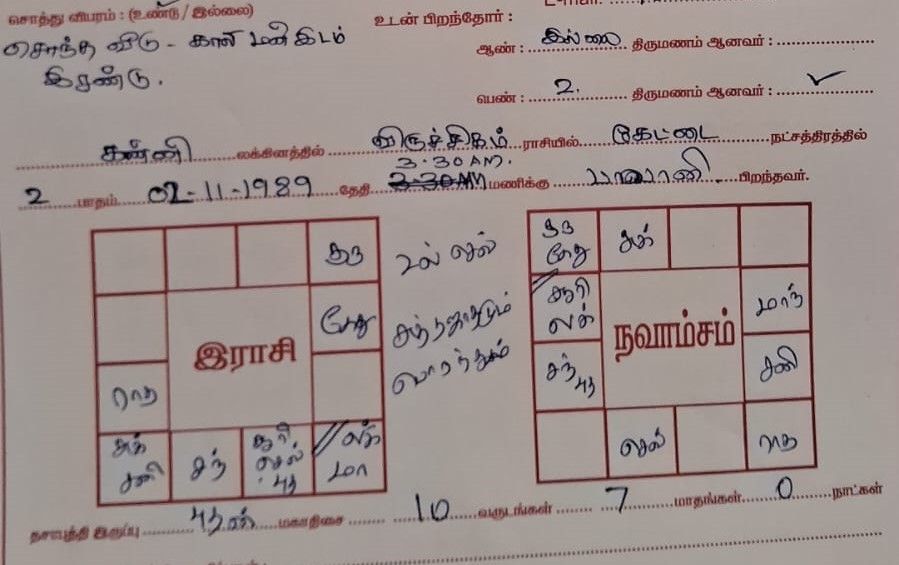 சொத்து விபரம் : (உண்டு / இல்லை)
சொந்த வீடு - காலி மனை இடம்
இரண்டு.
உடன் பிறந்தோர் :
ஆண் : இல்லை திருமணம் ஆனவர் :
பெண் : 2. திருமணம் ஆனவர் : ✓
கன்னி லக்கினத்தில் விருச்சிகம் ராசியில் கேட்டை நட்சத்திரத்தில்
3.30 AM.
2 பாதம் 02-11-1989 தேதி 3-30AM மணிக்கு பவானி பிறந்தவர்.
குரு
கேது
ராகு
சுக் சனி
சந்
சூரி செல் புத
லக் மா
இராசி
2ல் செல்
சுத்தஜாதகம்
பொருந்தும்
குரு கேது
சுக்
சூரி லக்
மாந்
சந் புத
சனி
செல்
ராகு
நவாம்சம்
தசாபுத்தி இருப்பு புதன் மகாதிசை 10 வருடங்கள் 7 மாதங்கள் 0 நாட்கள்